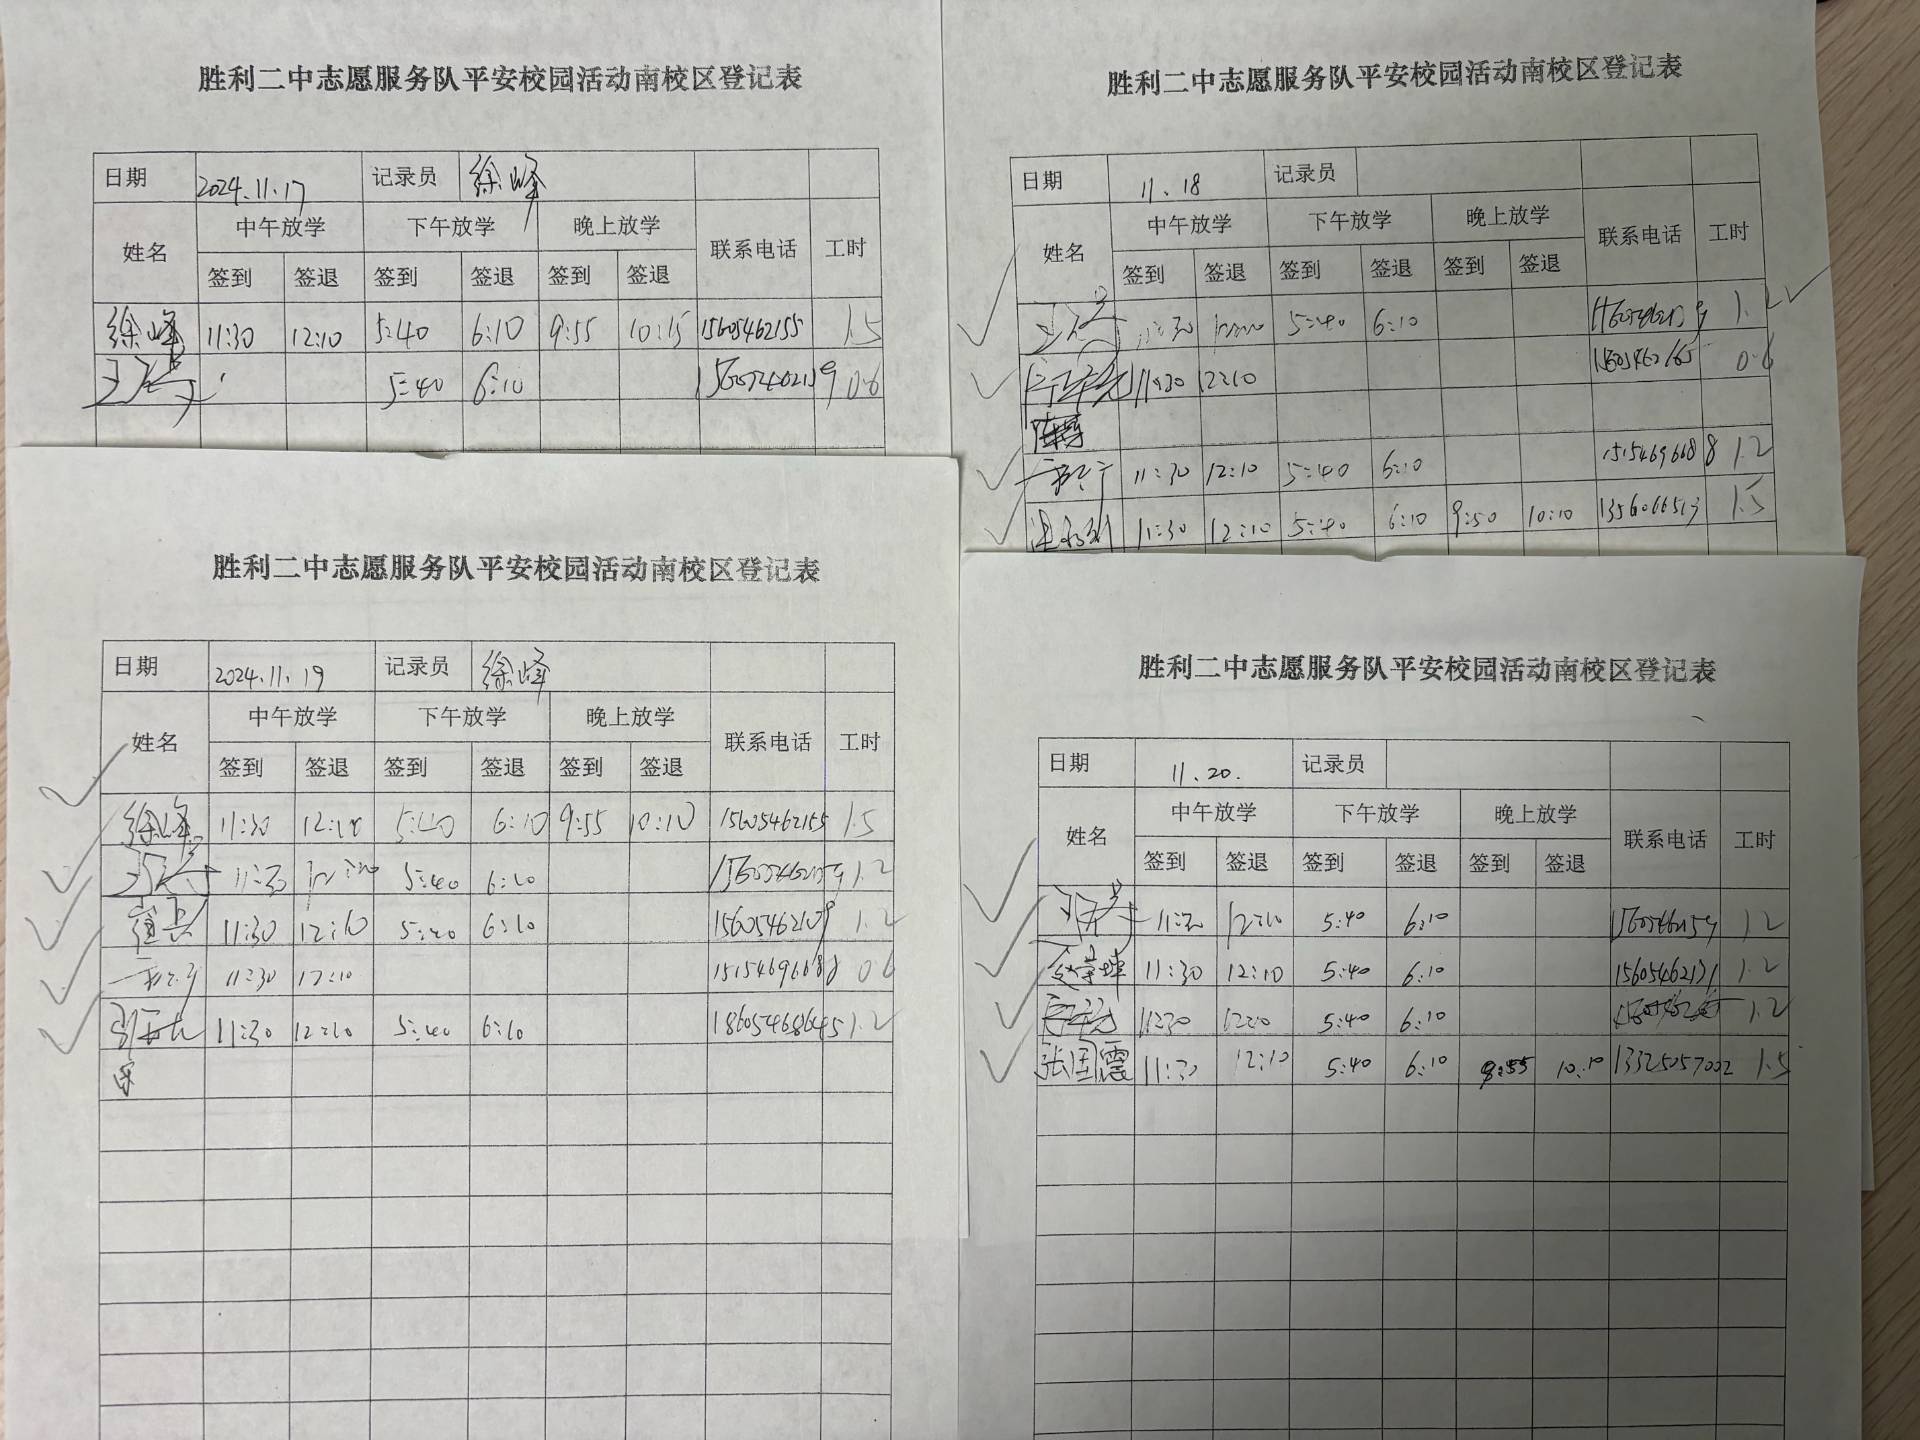 胜利二中志愿服务队平安校园活动南校区登记表
日期 2024.11.17 记录员 徐峰
姓名 中午放学 下午放学 晚上放学 联系电话 工时
签到 签退 签到 签退 签到 签退
徐峰 11:30 12:10 5:40 6:10 9:55 10:15 15605462155 1.5
5:40 6:10 0.6
胜利二中志愿服务队平安校园活动南校区登记表
日期 11.18 记录员
姓名 中午放学 下午放学 晚上放学 联系电话 工时
签到 签退 签到 签退 签到 签退
11:30 5:40 6:10 1.2
11:30 12:10 0.6
11:30 12:10 5:40 6:10 15154696688 1.2
11:30 12:10 5:40 6:10 9:50 10:10 1.5
胜利二中志愿服务队平安校园活动南校区登记表
日期 2024.11.19 记录员 徐峰
姓名 中午放学 下午放学 晚上放学 联系电话 工时
签到 签退 签到 签退 签到 签退
徐峰 11:30 12:10 5:40 6:10 9:55 10:10 15605462155 1.5
11:30 5:40 6:10 1.2
11:30 12:10 5:40 6:10 1.2
11:30 12:10 15154696688 0.6
11:30 12:10 5:40 6:10 18605468645 1.2
胜利二中志愿服务队平安校园活动南校区登记表
日期 11.20. 记录员
姓名 中午放学 下午放学 晚上放学 联系电话 工时
签到 签退 签到 签退 签到 签退
11:30 12:10 5:40 6:10 1.2
11:30 12:10 5:40 6:10 15605462171 1.2
11:30 12:10 5:40 6:10 1.2
张国震 11:30 12:10 5:40 6:10 9:55 10:10 13325057002 1.5